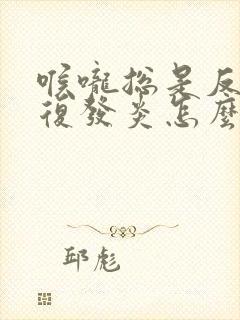 喉嚨總是反
復發炎怎麼
邱彪